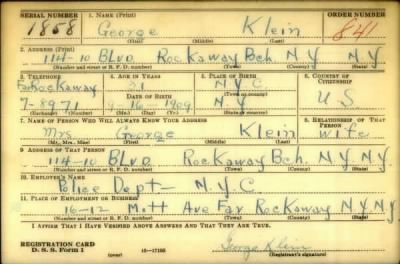 SERIAL NUMBER 1. NAME (Print) ORDER NUMBER
1858 George Klein 841
(First) (Middle) (Last)
2. ADDRESS (Print)
114-10 BLVD. Rockaway Bch. N Y N Y
(Number and street or R. F. D. number) (Town) (County) (State)
3. TELEPHONE 4. AGE IN YEARS 5. PLACE OF BIRTH 6. COUNTRY OF CITIZENSHIP
Far Rockaway 31 N Y C
DATE OF BIRTH (Town or county)
7-8971 9-16-1909 N Y U S
(Exchange) (Number) (Mo.) (Day) (Yr.) (State or country)
7. NAME OF PERSON WHO WILL ALWAYS KNOW YOUR ADDRESS 8. RELATIONSHIP OF THAT PERSON
Mrs George Klein wife
(Mr., Mrs., Miss) (First) (Middle) (Last)
9. ADDRESS OF THAT PERSON
114-10 BLVD Rockaway Bch. N.Y. N.Y.
(Number and street or R. F. D. number) (Town) (County) (State)
10. EMPLOYER'S NAME
Police Dept — N.Y.C.
11. PLACE OF EMPLOYMENT OR BUSINESS
16-12 Mott Ave Far Rockaway N.Y. N.Y.
(Number and street or R. F. D. number) (Town) (County) (State)
I AFFIRM THAT I HAVE VERIFIED ABOVE ANSWERS AND THAT THEY ARE TRUE.
REGISTRATION CARD George Klein
D. S. S. Form 1 (over) (Registrant's signature)